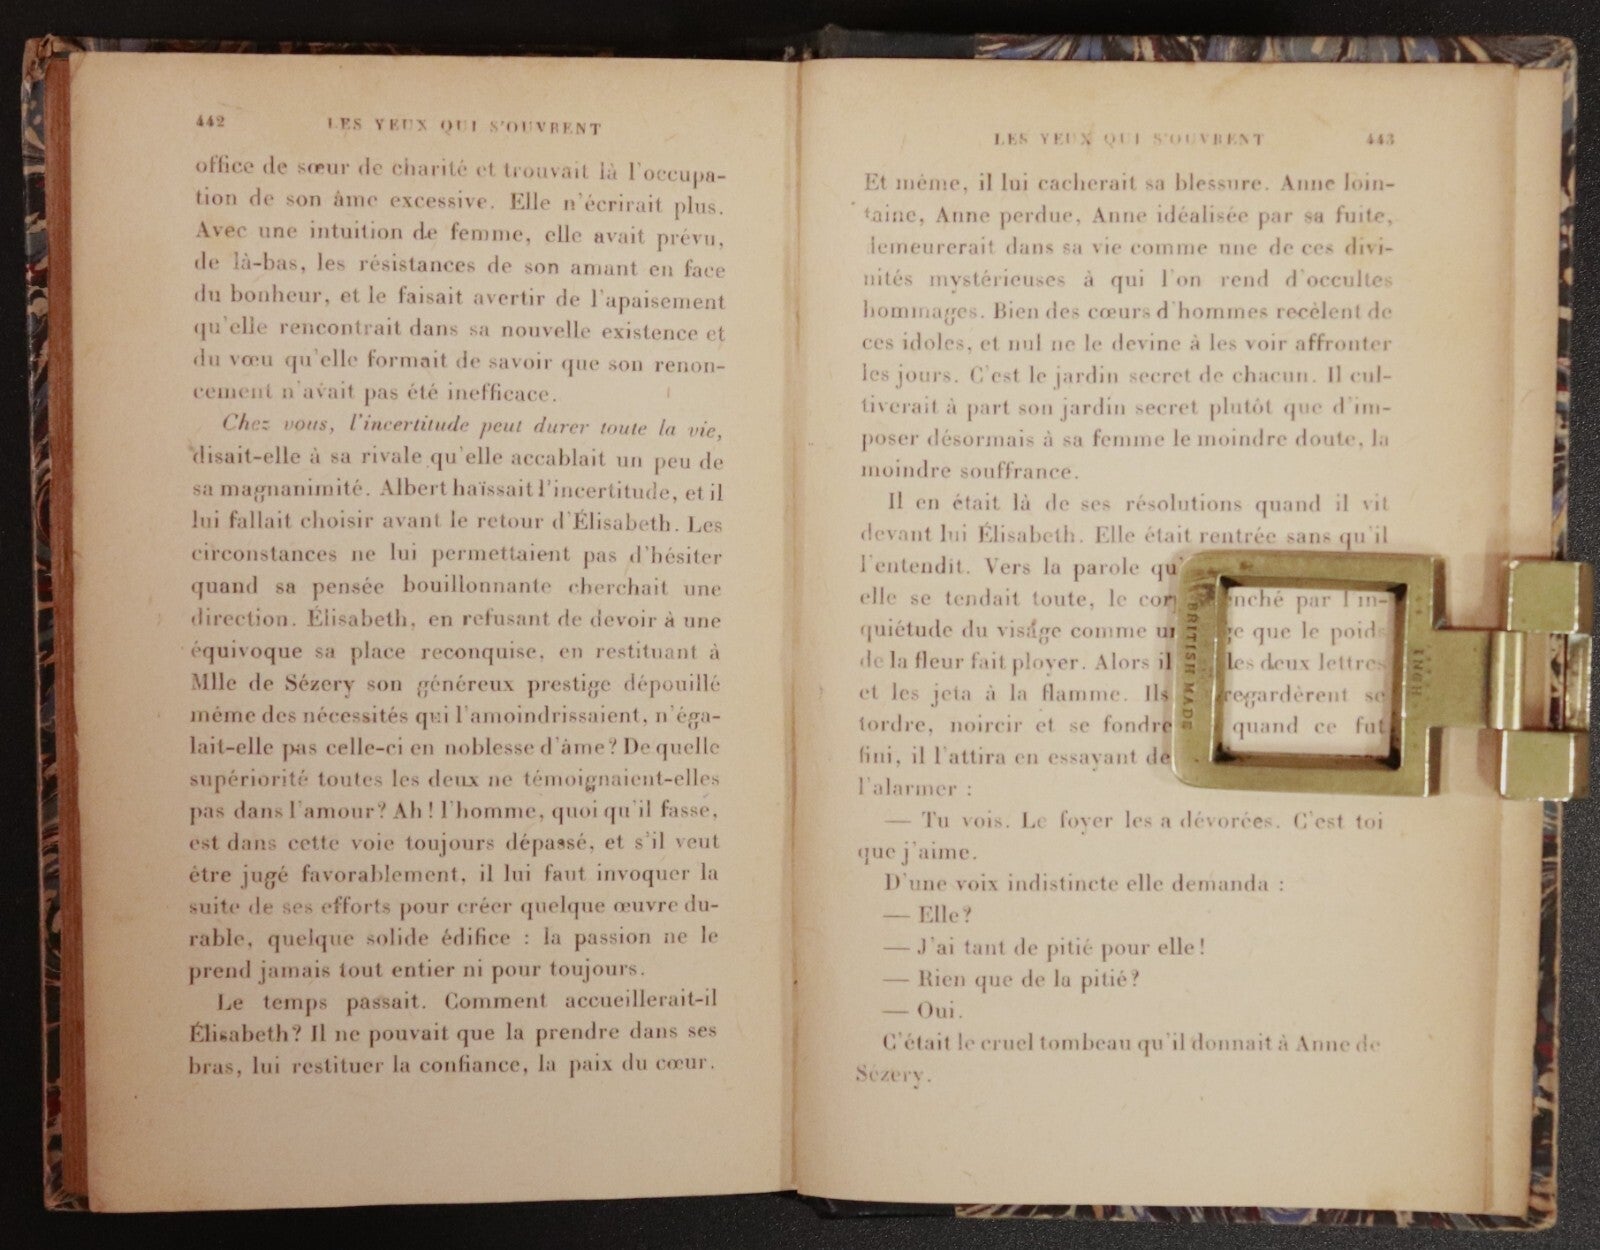 442 LES YEUX QUI S'OUVRENT
office de sœur de charité et trouvait là l'occupa-
tion de son âme excessive. Elle n'écrirait plus.
Avec une intuition de femme, elle avait prévu,
de là-bas, les résistances de son amant en face
du bonheur, et le faisait avertir de l'apaisement
qu'elle rencontrait dans sa nouvelle existence et
du vœu qu'elle formait de savoir que son renon-
cement n'avait pas été inefficace.
Chez vous, l'incertitude peut durer toute la vie,
disait-elle à sa rivale qu'elle accablait un peu de
sa magnanimité. Albert haïssait l'incertitude, et il
lui fallait choisir avant le retour d'Élisabeth. Les
circonstances ne lui permettaient pas d'hésiter
quand sa pensée bouillonnante cherchait une
direction. Élisabeth, en refusant de devoir à une
équivoque sa place reconquise, en restituant à
Mlle de Sézery son généreux prestige dépouillé
même des nécessités qui l'amoindrissaient, n'éga-
lait-elle pas celle-ci en noblesse d'âme? De quelle
supériorité toutes les deux ne témoignaient-elles
pas dans l'amour? Ah! l'homme, quoi qu'il fasse,
est dans cette voie toujours dépassé, et s'il veut
être jugé favorablement, il lui faut invoquer la
suite de ses efforts pour créer quelque œuvre du-
rable, quelque solide édifice : la passion ne le
prend jamais tout entier ni pour toujours.
Le temps passait. Comment accueillerait-il
Élisabeth? Il ne pouvait que la prendre dans ses
bras, lui restituer la confiance, la paix du cœur.
LES YEUX QUI S'OUVRENT 443
Et même, il lui cacherait sa blessure. Anne loin-
taine, Anne perdue, Anne idéalisée par sa fuite,
demeurerait dans sa vie comme une de ces divi-
nités mystérieuses à qui l'on rend d'occultes
hommages. Bien des cœurs d'hommes recèlent de
ces idoles, et nul ne le devine à les voir affronter
les jours. C'est le jardin secret de chacun. Il cul-
tiverait à part son jardin secret plutôt que d'im-
poser désormais à sa femme le moindre doute, la
moindre souffrance.
Il en était là de ses résolutions quand il vit
devant lui Élisabeth. Elle était rentrée sans qu'il
l'entendît. Vers la parole qu'
elle se tendait toute, le cor nché par l'in-
quiétude du visage comme un ge que le poids
de la fleur fait ployer. Alors il les deux lettres
et les jeta à la flamme. Ils regardèrent se
tordre, noircir et se fondre quand ce fut
fini, il l'attira en essayant de
l'alarmer :
— Tu vois. Le foyer les a dévorées. C'est toi
que j'aime.
D'une voix indistincte elle demanda :
— Elle?
— J'ai tant de pitié pour elle!
— Rien que de la pitié?
— Oui.
C'était le cruel tombeau qu'il donnait à Anne de
Sézery.
BRITISH MADE
INCH